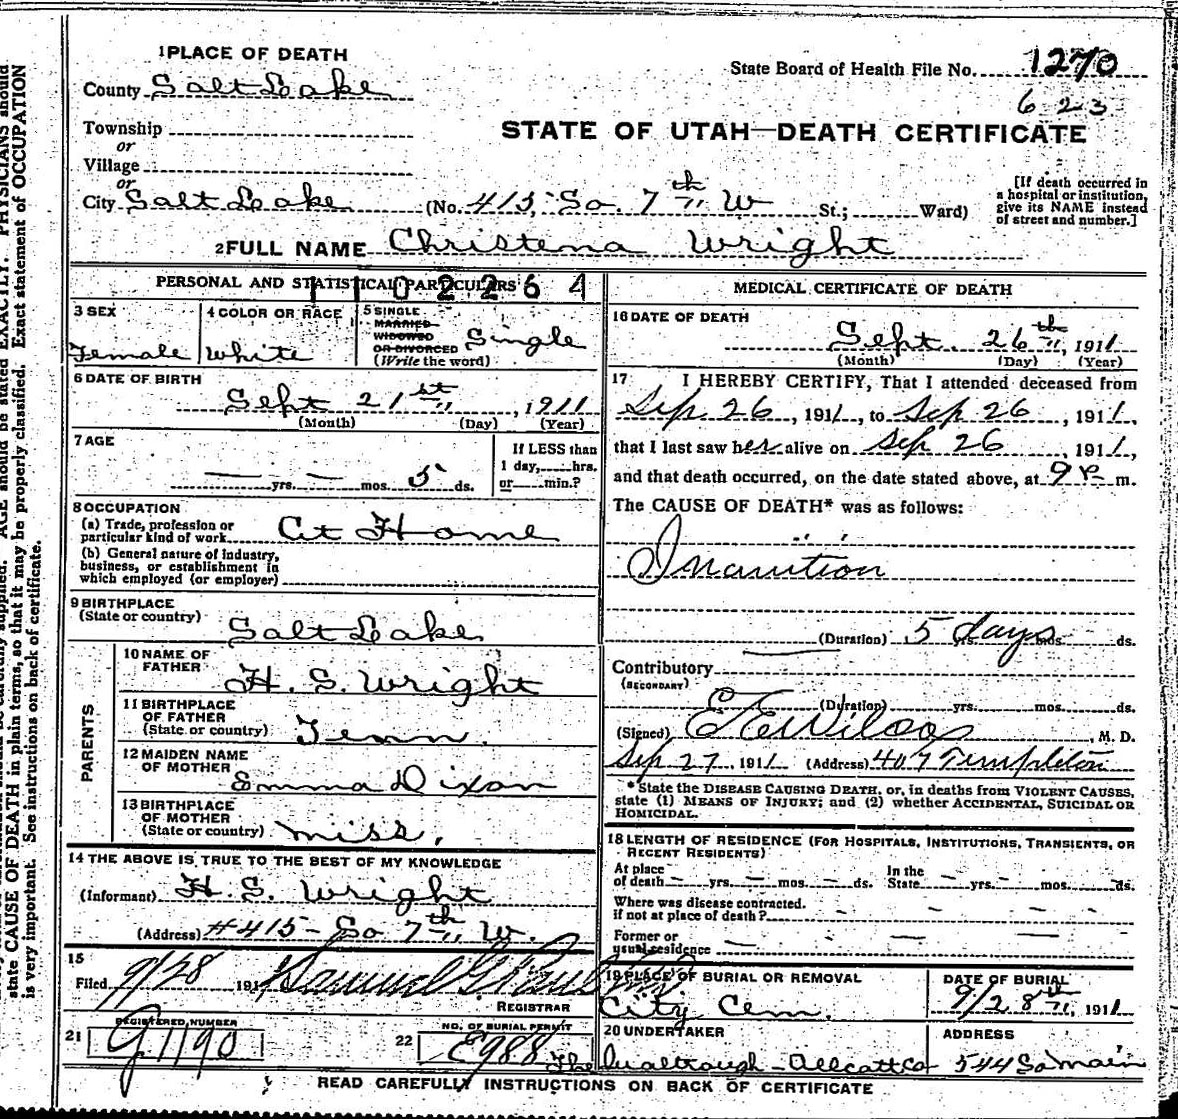 1 PLACE OF DEATH
County Salt Lake
State Board of Health File No. 1270
623
Township
or
Village
or
STATE OF UTAH—DEATH CERTIFICATE
City Salt Lake (No. 415, So. 7th W St.; Ward)
[If death occurred in a hospital or institution, give its NAME instead of street and number.]
2 FULL NAME Christena Wright
PERSONAL AND STATISTICAL PARTICULARS
1102264
3 SEX
Female
4 COLOR OR RACE
White
5 SINGLE
MARRIED
WIDOWED
OR DIVORCED
(Write the word)
Single
6 DATE OF BIRTH
Sept 21st, 1911
(Month) (Day) (Year)
7 AGE
— yrs. — mos. 5 ds.
If LESS than
1 day, hrs.
or min.?
8 OCCUPATION
(a) Trade, profession or
particular kind of work At Home
(b) General nature of industry,
business, or establishment in
which employed (or employer)
9 BIRTHPLACE
(State or country)
Salt Lake
PARENTS
10 NAME OF
FATHER
H. S. Wright
11 BIRTHPLACE
OF FATHER
(State or country) Tenn.
12 MAIDEN NAME
OF MOTHER
Emma Dixon
13 BIRTHPLACE
OF MOTHER
(State or country) Miss.
14 THE ABOVE IS TRUE TO THE BEST OF MY KNOWLEDGE
(Informant) H. S. Wright
(Address) #415- So 7th W.
15
Filed 9/28 191
REGISTRAR
21 REGISTERED NUMBER
G1190
22 NO. OF BURIAL PERMIT
E988
MEDICAL CERTIFICATE OF DEATH
16 DATE OF DEATH
Sept. 26th, 1911
(Month) (Day) (Year)
17 I HEREBY CERTIFY, That I attended deceased from
Sep 26, 1911, to Sep 26, 1911,
that I last saw her alive on Sep 26, 1911,
and that death occurred, on the date stated above, at 9 P m.
The CAUSE OF DEATH* was as follows:
Inanition
(Duration) 5 yrs. days mos. ds.
Contributory
(SECONDARY)
(Duration) yrs. mos. ds.
(Signed) , M. D.
Sep 27, 1911 (Address) 407 Templeton
* State the DISEASE CAUSING DEATH, or, in deaths from VIOLENT CAUSES,
state (1) MEANS OF INJURY; and (2) whether ACCIDENTAL, SUICIDAL OR
HOMICIDAL.
18 LENGTH OF RESIDENCE (FOR HOSPITALS, INSTITUTIONS, TRANSIENTS, OR
RECENT RESIDENTS)
At place
of death — yrs. — mos. — ds.
In the
State — yrs. — mos. — ds.
Where was disease contracted,
if not at place of death?
Former or
usual residence
19 PLACE OF BURIAL OR REMOVAL
City Cem.
DATE OF BURIAL
9/28th, 1911
20 UNDERTAKER
ADDRESS
544 So Main
READ CAREFULLY INSTRUCTIONS ON BACK OF CERTIFICATE
AGE should be stated EXACTLY. PHYSICIANS should
state CAUSE OF DEATH in plain terms, so that it may be properly classified. Exact statement of OCCUPATION
is very important. See instructions on back of certificate.